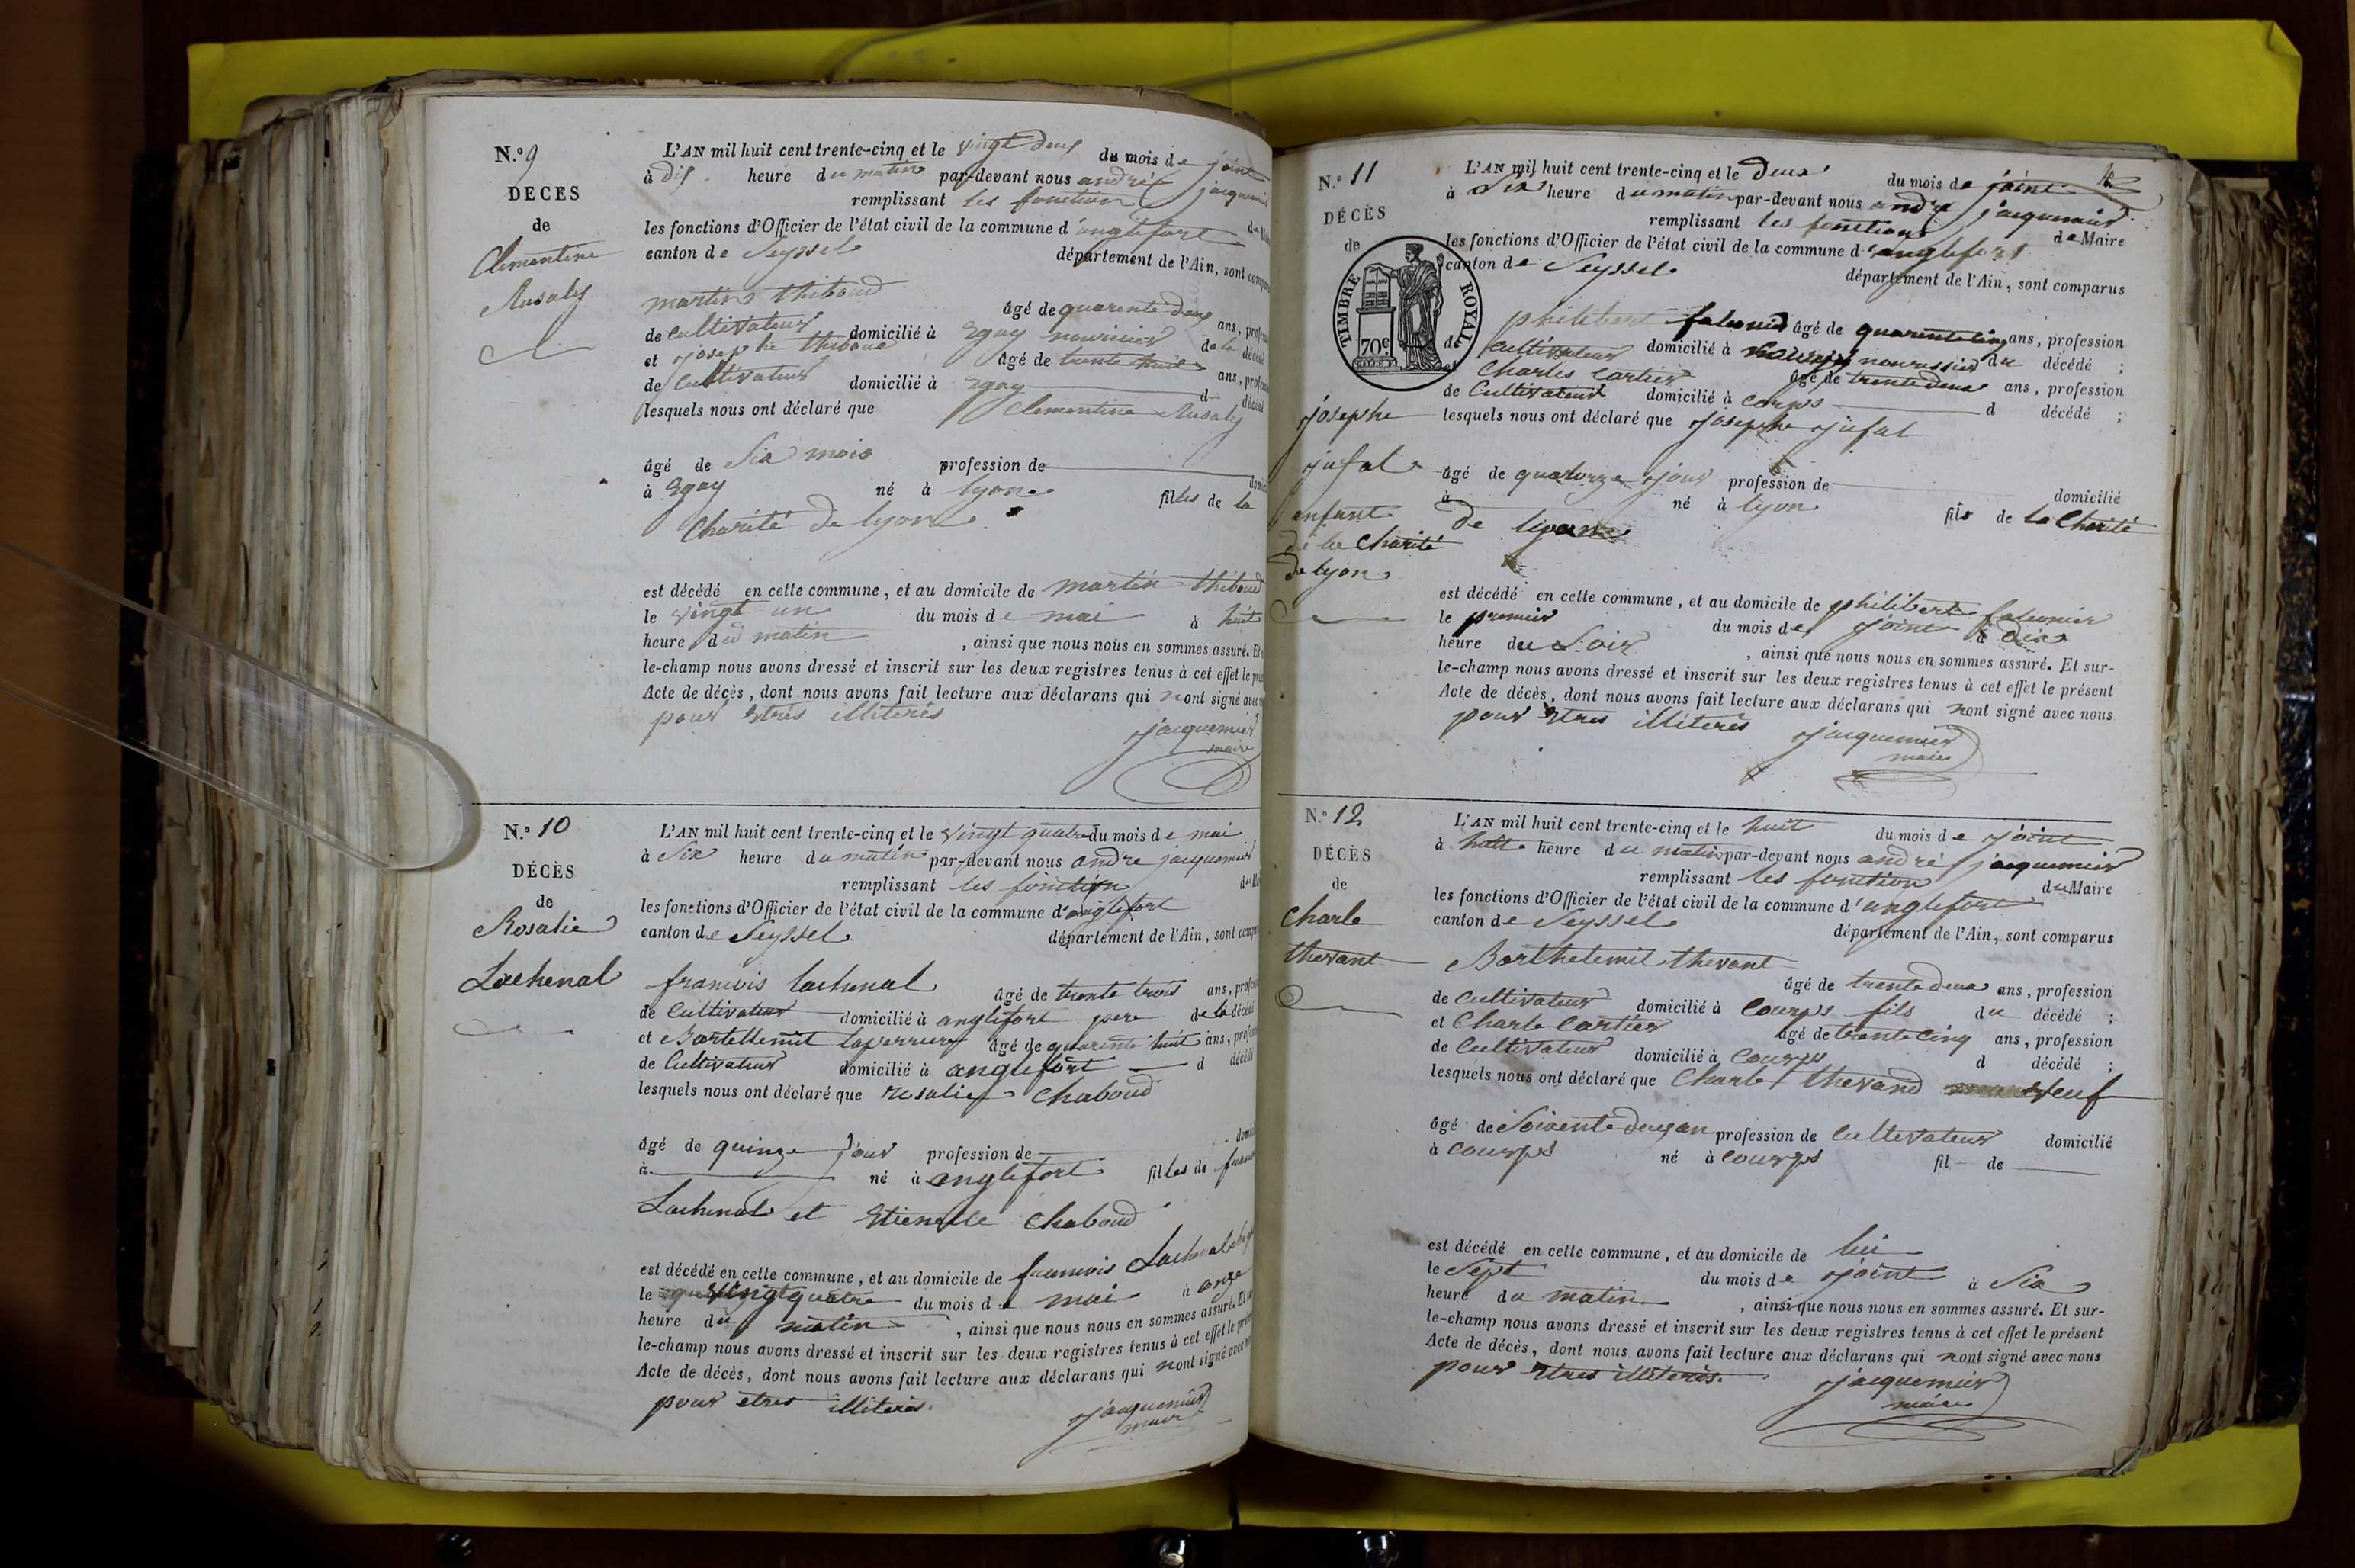 N.º 9
DÉCES
de
Clementine
Rusaly
L'AN mil huit cent trente-cinq et le vingt deux du mois de joint
à dix heure du matin par-devant nous andré jacquemier
remplissant les fonction du
les fonctions d'Officier de l'état civil de la commune d'anglefort
canton de Seyssel département de l'Ain, sont compar
martin thiboud âgé de quarente deux ans, profes
de cultivateur domicilié à Egay nouricier de la décédé
et josephe thiboud âgé de trente huit ans, profes
de Cultivateur domicilié à Egay d décédé
lesquels nous ont déclaré que Clementine Rusaly
âgé de Six mois profession de domici
à Egay né à lyon filles de la
Charité de lyon
est décédé en cette commune, et au domicile de martin thiboud
le vingt un du mois de mai à huit
heure du matin , ainsi que nous nous en sommes assuré. Et
le-champ nous avons dressé et inscrit sur les deux registres tenus à cet effet le pré
Acte de décès, dont nous avons fait lecture aux déclarans qui nont signé avec
pour Etrés illiterés
jacquemier
maire
N.º 10
DÉCÈS
de
Rosalie
Lachenal
L'AN mil huit cent trente-cinq et le vingt quatre du mois de mai
à Six heure du matin par-devant nous andre jacquemier
remplissant les fonction du
les fonctions d'Officier de l'état civil de la commune d'anglefort
canton de Seyssel département de l'Ain, sont compar
francois lachenal âgé de trente trois ans, profess
de Cultivateur domicilié à anglefort pere de la décédé
et Bartellemit laperriere âgé de quarente huit ans, profe
de Cultivateur domicilié à anglefort d décédé
lesquels nous ont déclaré que rosalie Chaboud
âgé de quinze jour profession de domici
à né à anglefort filles de
Lachenal et Etienette Chaboud
est décédé en cette commune, et au domicile de francois Lachenal
le vingt quatre du mois de mai à onze
heure du matin , ainsi que nous nous en sommes assuré. Et
le-champ nous avons dressé et inscrit sur les deux registres tenus à cet effet le prés
Acte de décès, dont nous avons fait lecture aux déclarans qui nont signé avec
pour etres illiterés.
jacquemier
maire
N.º 11
DÉCÈS
de
TIMBRE ROYAL
70c
josephe
jufal
enfant
de la Charité
de lyon
L'AN mil huit cent trente-cinq et le Deux du mois de joint
à Six heure du matin par-devant nous andre jacquemier
remplissant les fonctions de Maire
les fonctions d'Officier de l'état civil de la commune d'anglefort
canton de Seyssel département de l'Ain, sont comparus
philibert falconier âgé de quarente cinq ans, profession
de Cultivateur domicilié à nourissier du décédé ;
et Charles Cartier âgé de trente deux ans, profession
de Cultivateur domicilié à Corps d décédé ;
lesquels nous ont déclaré que josephe jufal
âgé de quatorze jour profession de domicilié
à né à lyon fils de la Charité
de lyon
est décédé en cette commune, et au domicile de philibert falconier
le premier du mois de joint à dix
heure du Soir , ainsi que nous nous en sommes assuré. Et sur-
le-champ nous avons dressé et inscrit sur les deux registres tenus à cet effet le présent
Acte de décès, dont nous avons fait lecture aux déclarans qui nont signé avec nous
pour Etres illiterés
jacquemier
maire
N.º 12
DÉCÈS
de
Charle
thevant
L'AN mil huit cent trente-cinq et le huit du mois de joint
à heure du matin par-devant nous andré jacquemier
remplissant les fonction du Maire
les fonctions d'Officier de l'état civil de la commune d'anglefort
canton de Seyssel département de l'Ain, sont comparus
Barthelemit thevant âgé de trente deux ans, profession
de Cultivateur domicilié à Courps fils du décédé ;
et Charle Cartier âgé de trente cinq ans, profession
de Cultivateur domicilié à Courps d décédé ;
lesquels nous ont déclaré que Charle thevand veuf
âgé de Soixente deux an profession de Cultivateur domicilié
à Courps né à Courps fil de
est décédé en cette commune, et au domicile de lui
le Sept du mois de joint à Six
heure du matin , ainsi que nous nous en sommes assuré. Et sur-
le-champ nous avons dressé et inscrit sur les deux registres tenus à cet effet le présent
Acte de décès, dont nous avons fait lecture aux déclarans qui nont signé avec nous
pour Etres illiterés.
jacquemier
maire